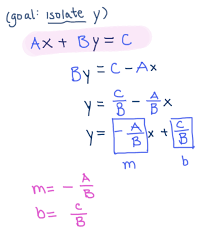 (goal: isolate y)
Ax + By = C
By = C - Ax
y = C/B - A/B x
y = - A/B x + C/B
m b
m = - A/B
b = C/B